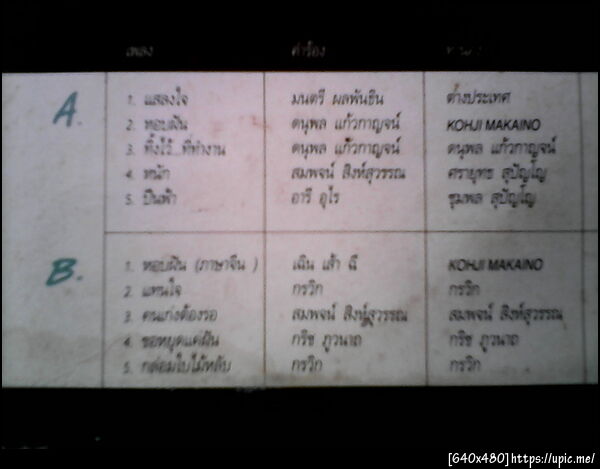 เพลง คำร้อง
A.
1. แสลงใจ มนตรี ผลพันธิน ต่างประเทศ
2. หอบฝัน ดนุพล แก้วกาญจน์ KOHJI MAKAINO
3. ทิ้งไว้...ที่ทำงาน ดนุพล แก้วกาญจน์ ดนุพล แก้วกาญจน์
4. หนัก สมพจน์ สิงห์สุวรรณ ศรายุทธ สุปัญโญ
5. ปีนฟ้า อารี อุไร ชุมพล สุปัญโญ
B.
1. หอบฝัน (ภาษาจีน ) เฉิน เจ้า ฉี KOHJI MAKAINO
2. แทนใจ กรวิก กรวิก
3. คนเก่งต้องรอ สมพจน์ สิงห์สุวรรณ สมพจน์ สิงห์สุวรรณ
4. ขอหยุดแค่ฝัน กริช ภูวนาถ กริช ภูวนาถ
5. กล่อมใบไม้หลับ กรวิก กรวิก
[640x480]https://upic.me/